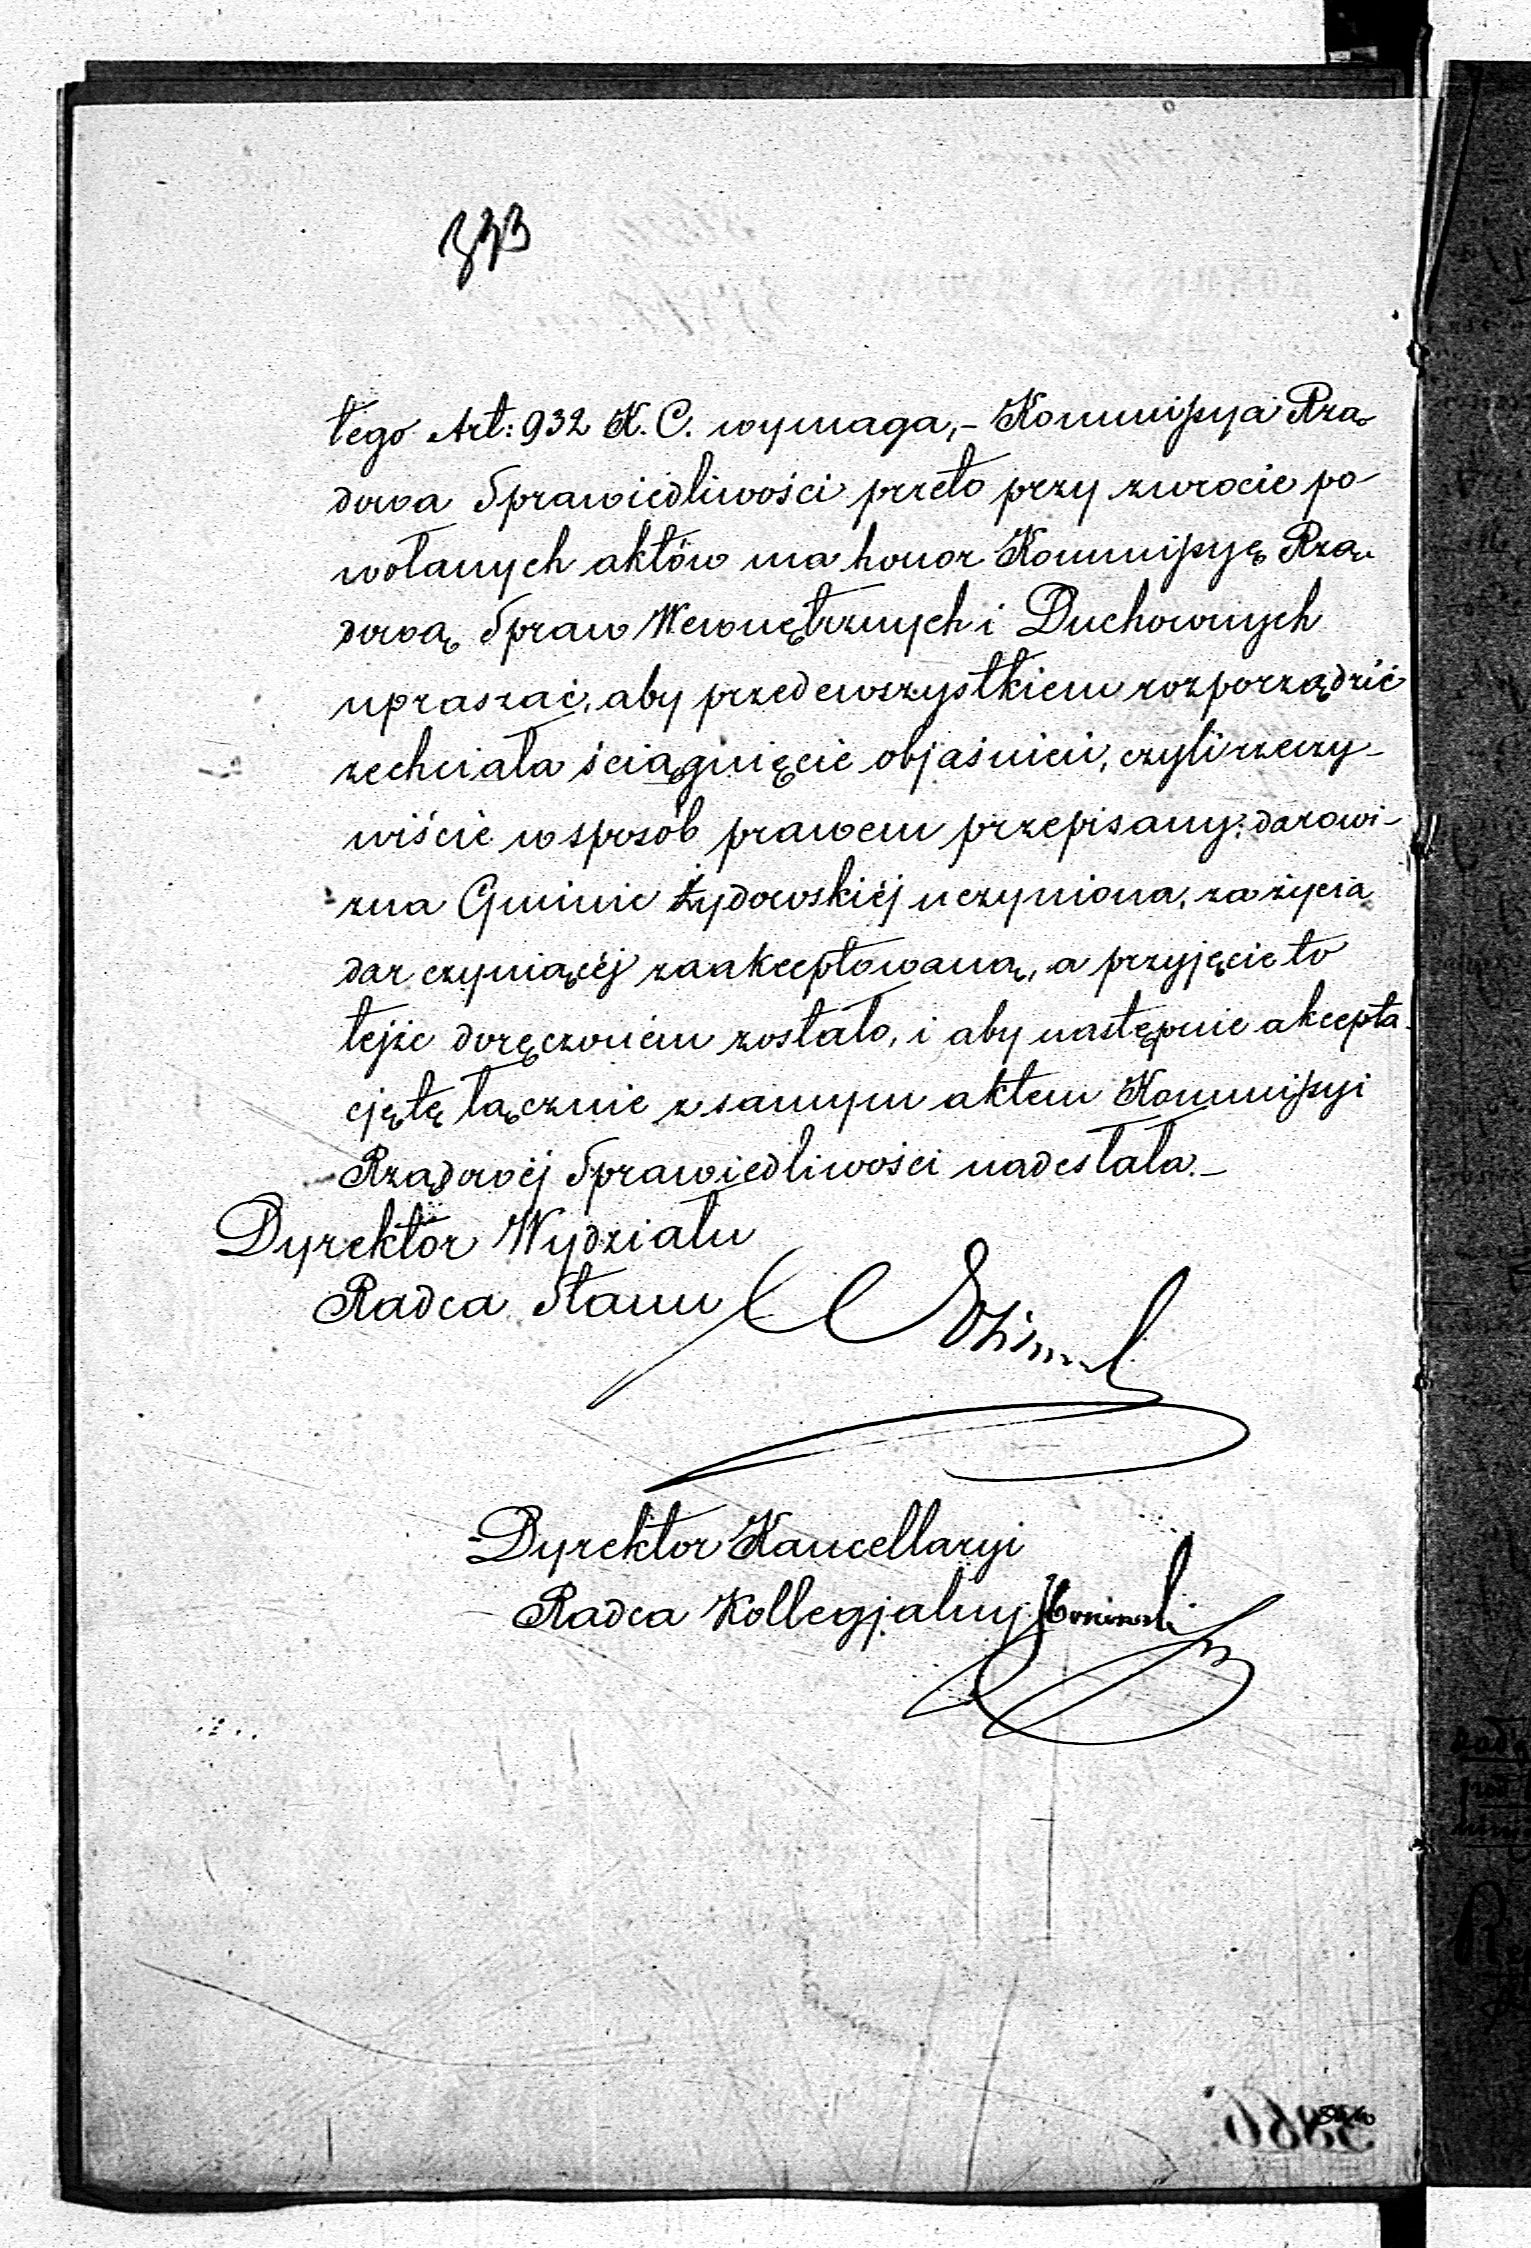 333
tego Art: 932 K. C. wymaga,- Kommissya Rzą-
dowa Sprawiedliwości przeto przy zwrocie po-
wołanych aktów ma honor Kommissyę Rzą-
dową Spraw Wewnętrznych i Duchownych
upraszać, aby przedewszystkiem rozporządzić
zechciała ściągnięcie objaśnień, czyli rzeczy-
wiście w sposób prawem przepisany, darowi-
zna Gminie Żydowskiéj uczyniona, za życia
dar czyniącéj zaakceptowaną, a przyjęcie to
tejże doręczoném zostało, i aby następnie akcepta-
cję tę łącznie z samym aktem Kommissyi
Rządowéj Sprawiedliwości nadesłała.-
Dyrektor Wydziału
Radca Stanu
Dyrektor Kancellaryi
Radca Kollegjalny